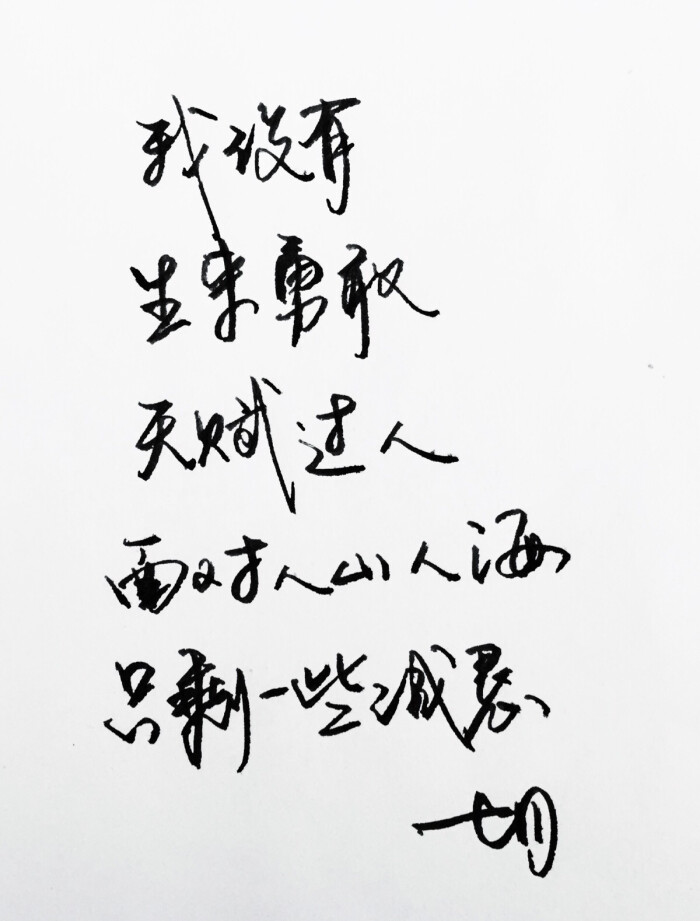 我没有
生来勇敢
天赋过人
面对人山人海
只剩一些诚恳
一切